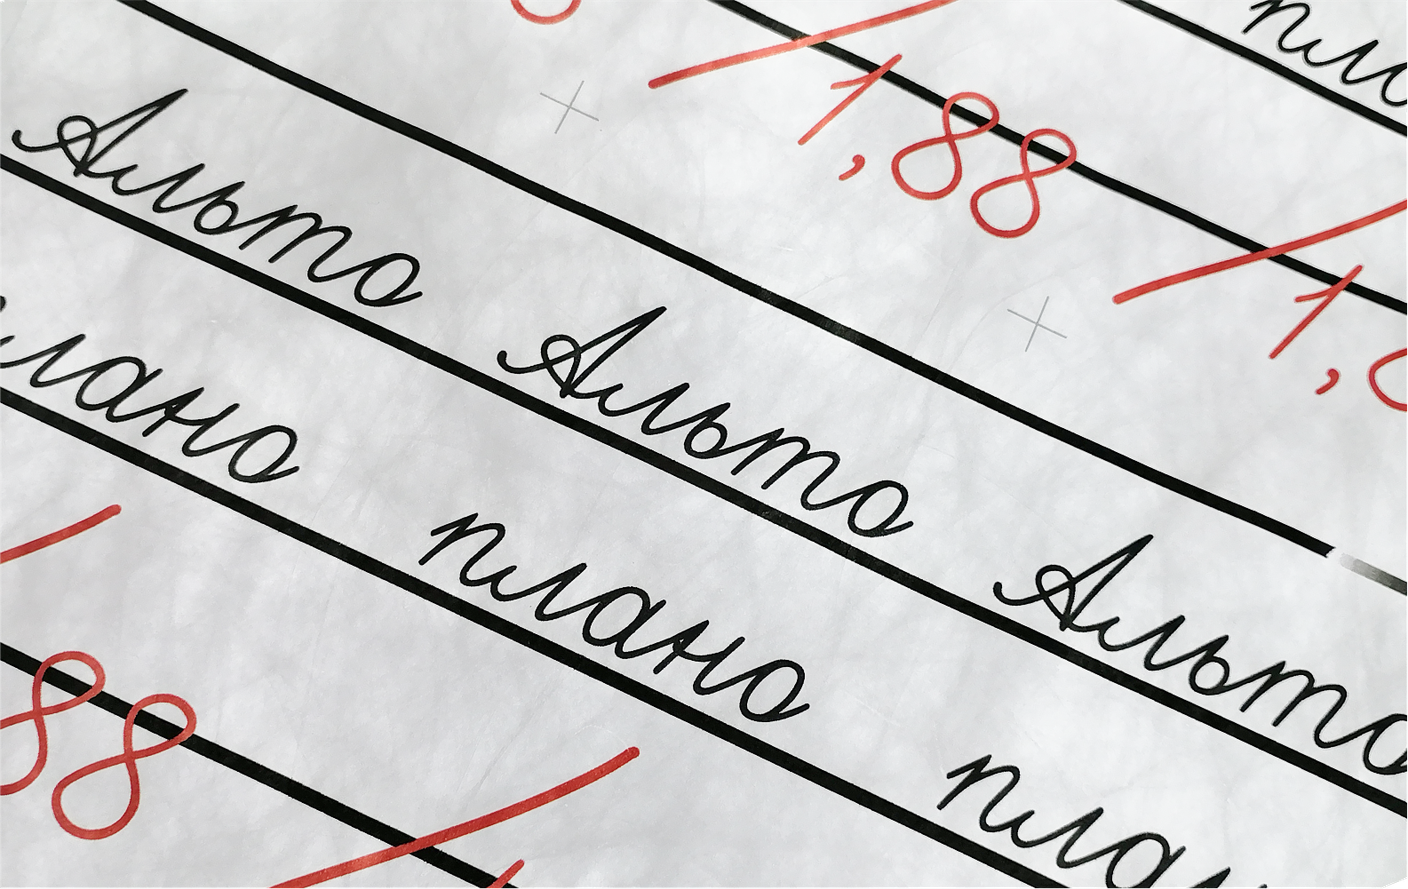 1,88
Альто Альто Альто
плано плано
88